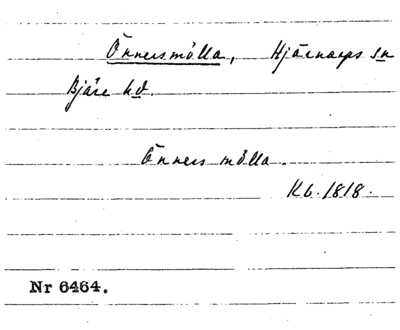 Önnersmölla, Hjärnarps sn
Bjäre hd.
Önners mölla.
Kb. 1818.
Nr 6464.